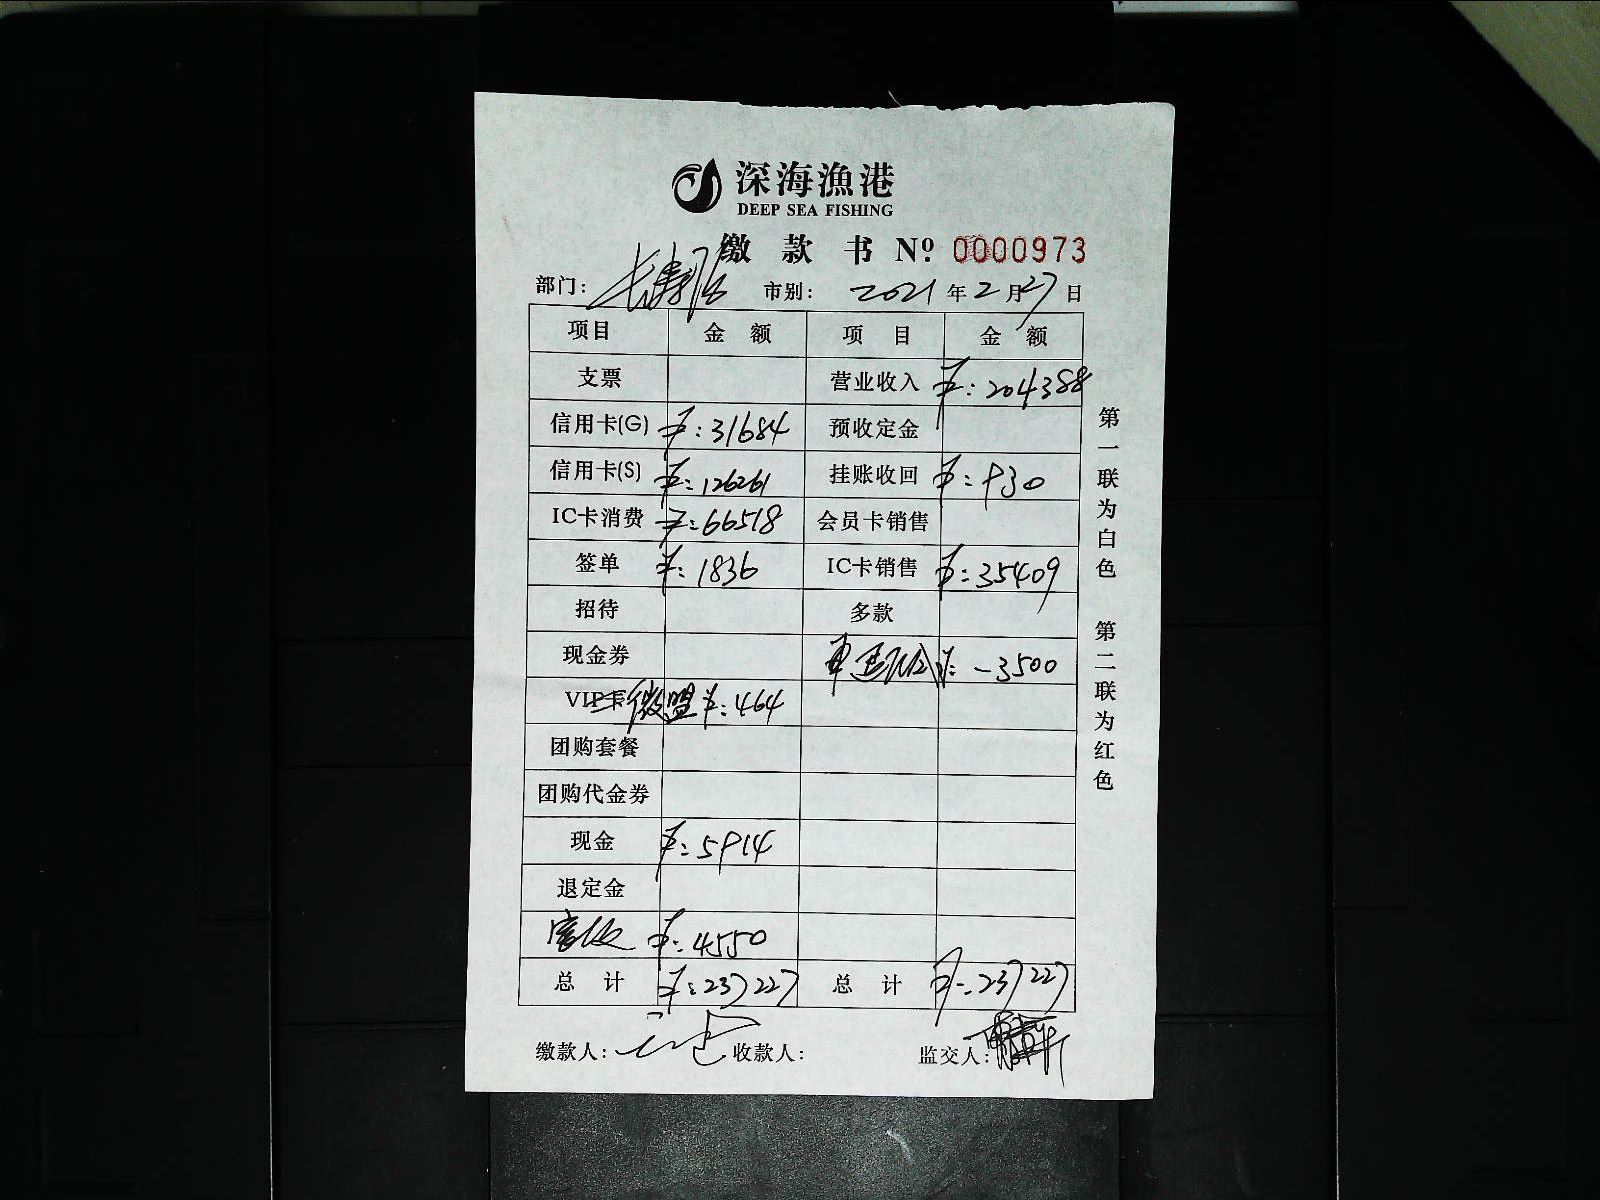 深海漁港
DEEP SEA FISHING
缴款书 Nº. 0000973
部门: 长寿 市别: 2021年2月27日
项目 金额 项目 金额
支票 营业收入 ¥:204388
信用卡(G) ¥:31684 预收定金
信用卡(S) ¥:126261 挂账收回 ¥:930
IC卡消费 ¥:66518 会员卡销售
签单 ¥:1836 IC卡销售 ¥:35409
招待 多款
现金券 ¥:-3500
VIP卡 微盟 ¥:464
团购套餐
团购代金券
现金 ¥:5914
退定金
¥:4550
总计 ¥:237227 总计 ¥:237227
缴款人: 收款人: 监交人:
第一联为白色 第二联为红色